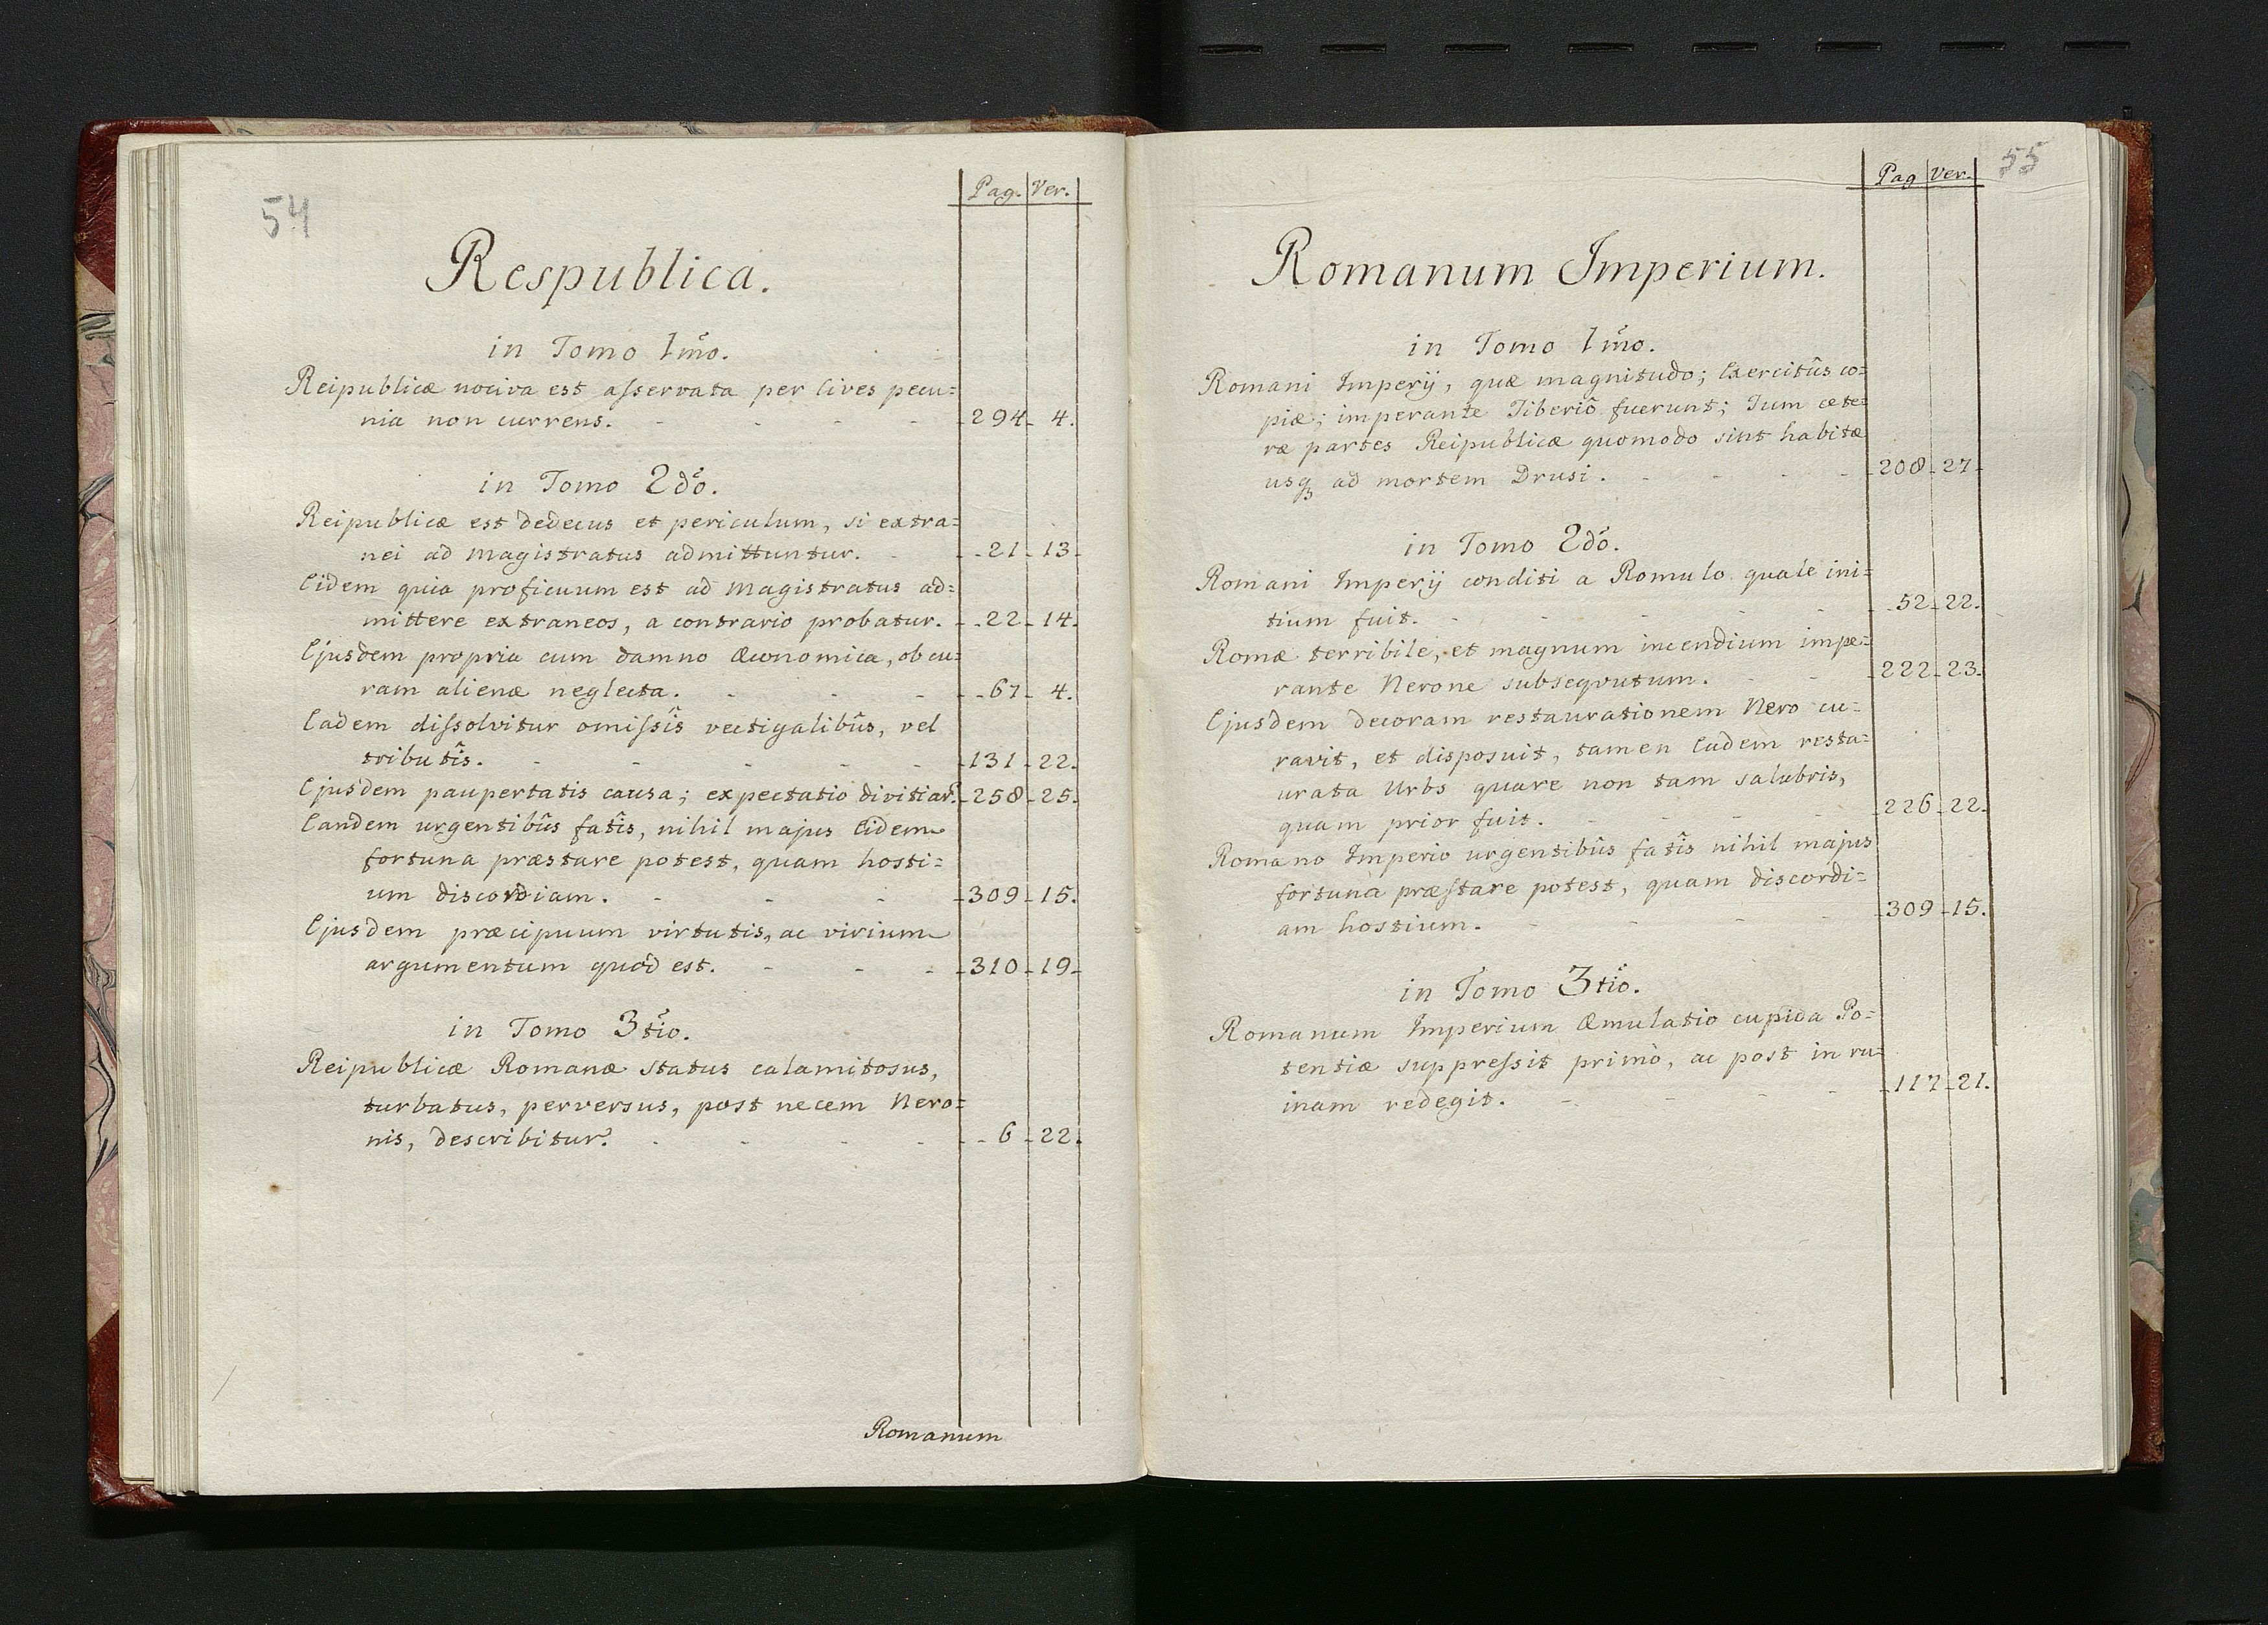 54
Pag. Ver.
Respublica.
in Tomo 1mo.
Reipublicæ nociva est asservata per Cives pecu=
nia non currens. - - - - 294. 4.
in Tomo 2do.
Reipublicæ est dedecus et periculum, si extra=
nei ad Magistratus admittuntur. - - 21. 13.
Eidem quia proficuum est ad Magistratus ad=
mittere extraneos, a contrario probatur. - 22. 14.
Ejusdem propria cum damno Œconomica, ob cu=
ram alienæ neglecta. - - - 67. 4.
Eadem dissolvitur omissîs vectigalibûs, vel
tributîs. - - - - - 131. 22.
Ejusdem paupertatis causa; expectatio divitiar. 258. 25.
Eandem urgentibûs fatîs, nihil majus Eidem
fortuna præstare potest, quam hosti=
um discordiam. - - - 309. 15.
Ejusdem præcipuum virtutis, ac virium
argumentum quod est. - - - 310. 19.
in Tomo 3tio.
Reipublicæ Romanæ status calamitosus,
turbatus, perversus, post necem Nero=
nis, describitur. - - - - 6. 22.
Romanum
55
Pag Ver.
Romanum Imperium.
in Tomo 1mo.
Romani Imperij, quæ magnitudo; Exercitûs co=
piæ; imperante Tiberiô fuerunt; Tum cete=
ræ partes Reipublicæ quomodo sint habitæ
usq3 ad mortem Drusi. - - - 208. 27.
in Tomo 2do.
Romani Imperij conditi a Romulo quale ini=
tium fuit. - - - - 52. 22.
Romæ terribile, et magnum incendium impe=
rante Nerone subseqvutum. - - 222. 23.
Ejusdem decoram restaurationem Nero cu=
ravit, et disposuit, tamen Eadem resta=
urata Urbs quare non tam salubris,
quam prior fuit. - - - 226. 22.
Romano Imperio urgentibûs fatîs nihil majus
fortuna præstare potest, quam discordi=
am hostium. - - - - 309. 15.
in Tomo 3tio.
Romanum Imperium Æmulatio cupida Po=
tentiæ suppressit primò, ac post in ru=
inam redegit. - - - - 117. 21.